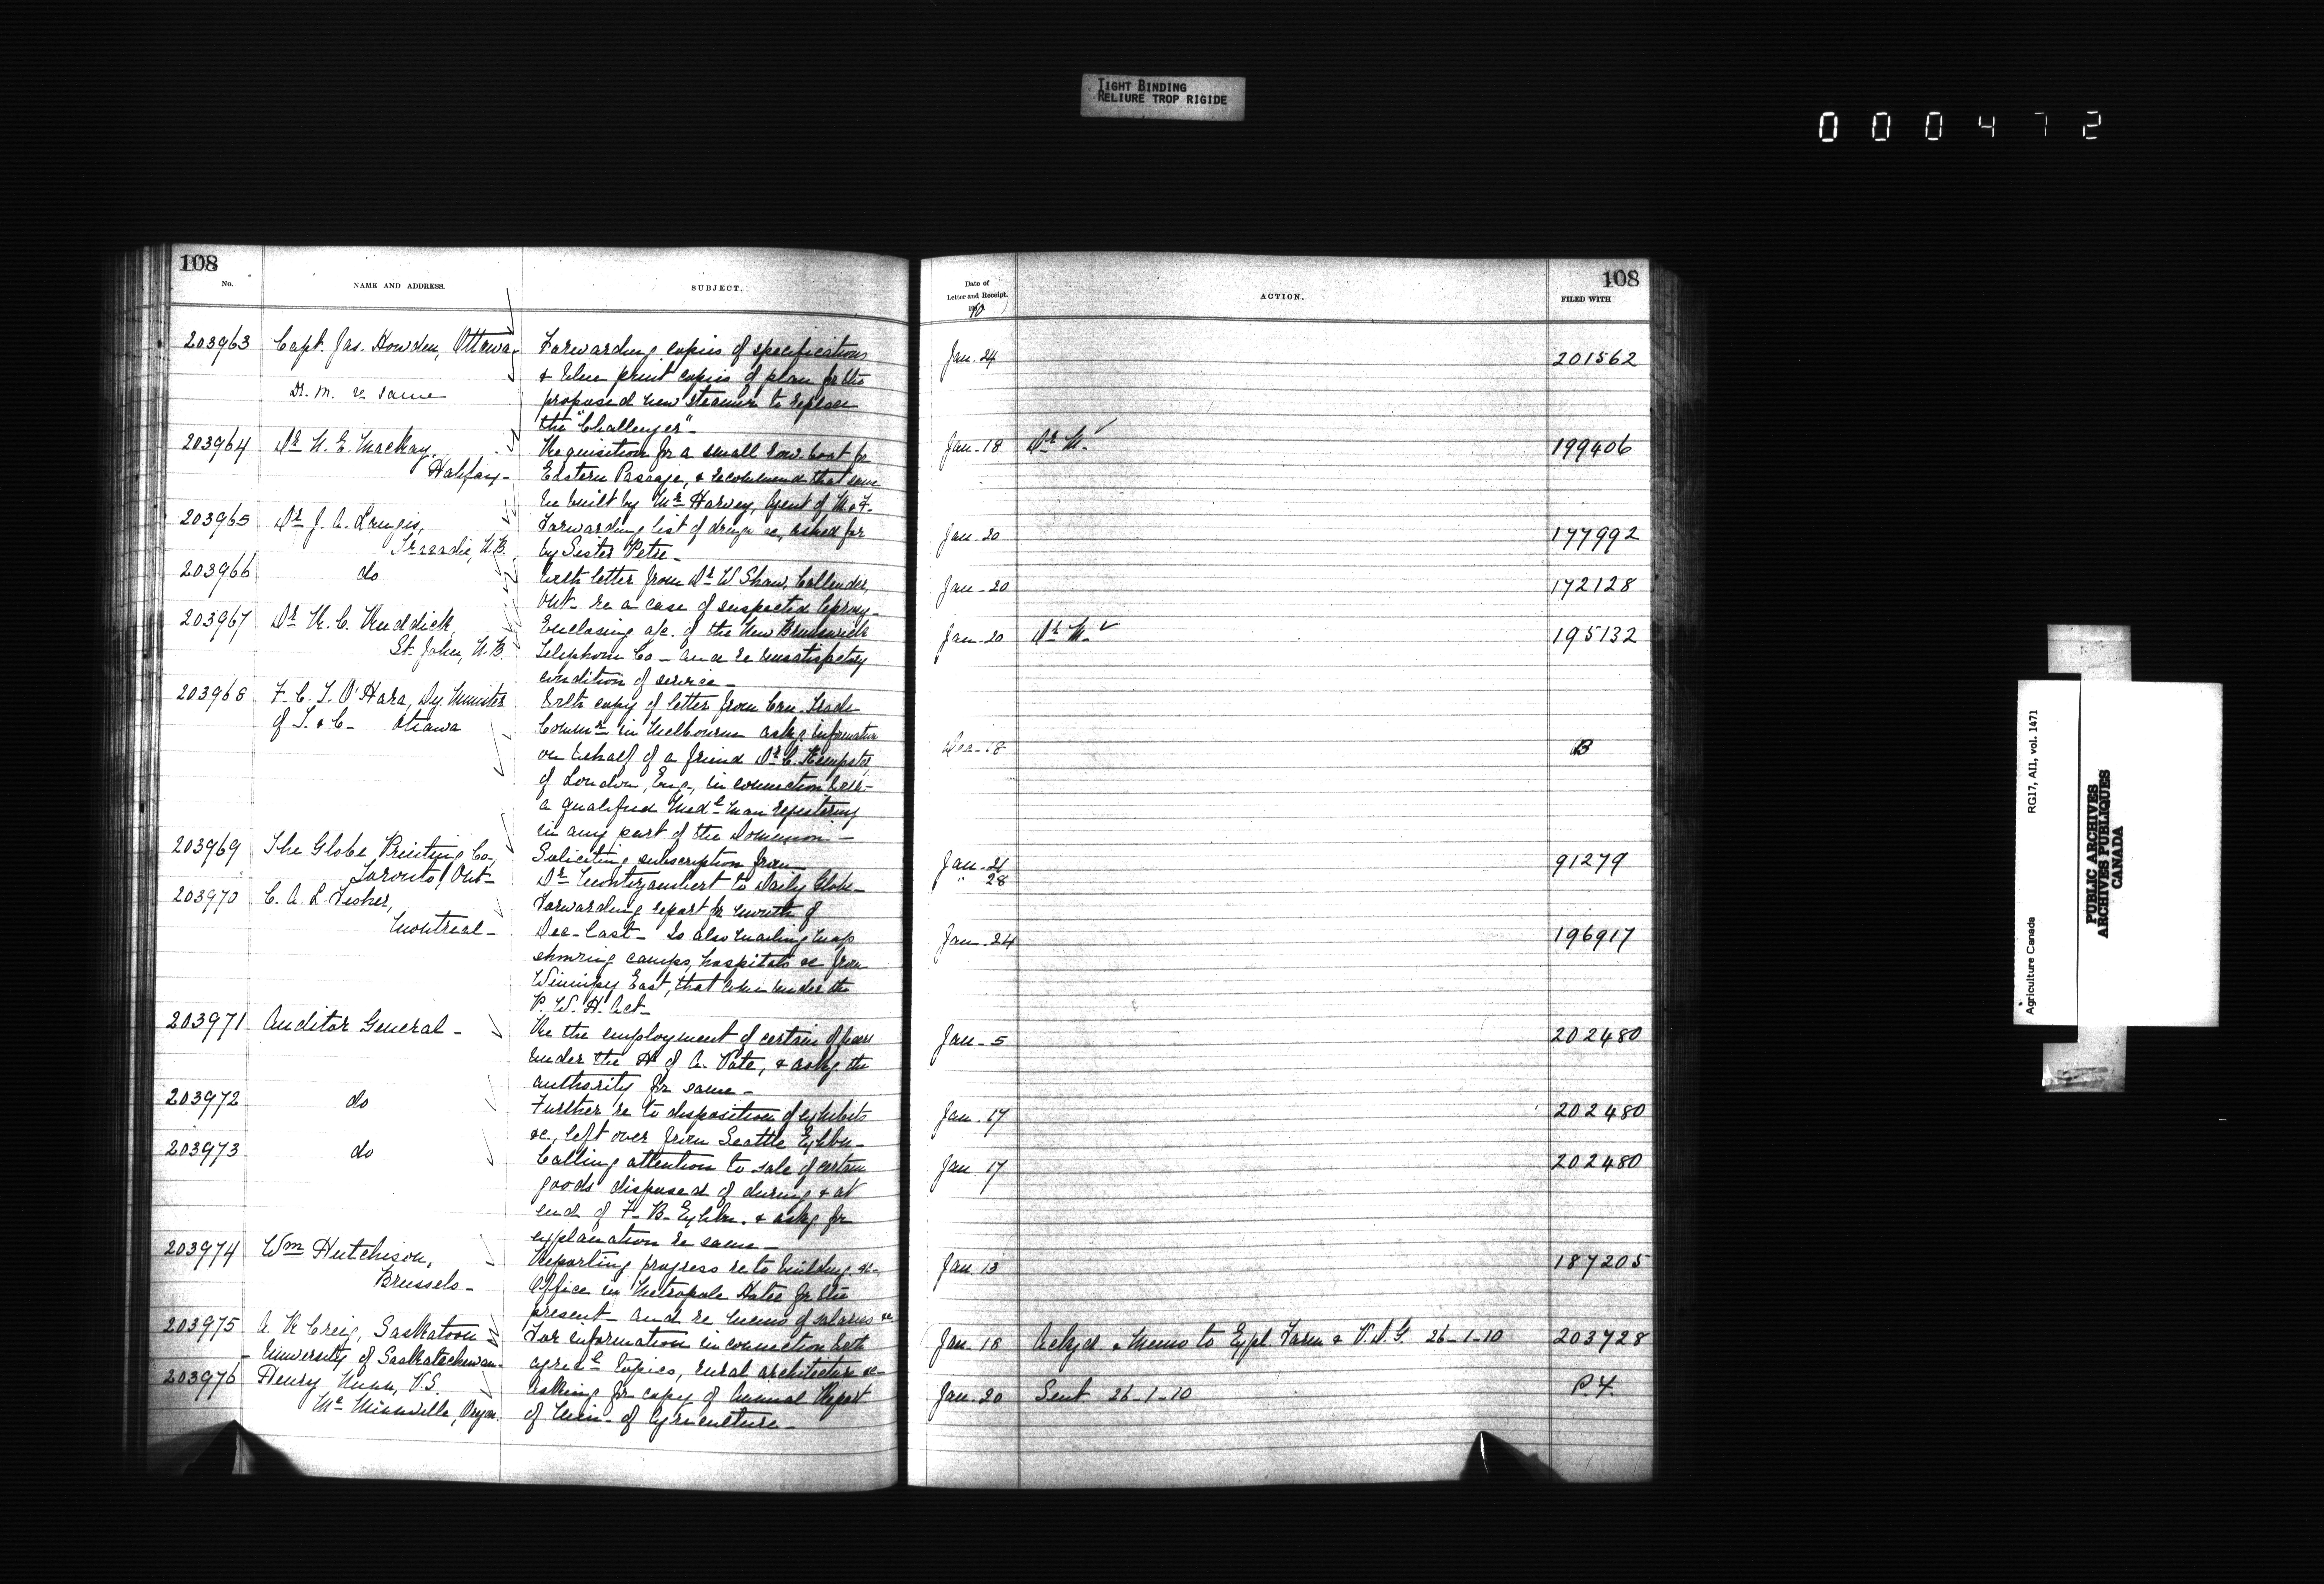 TIGHT BINDING
RELIURE TROP RIGIDE
000472
108
No.
NAME AND ADDRESS.
SUBJECT.
203963 Capt. Jas. Howden, Ottawa Forwarding copies of specifications
& blue print copies of plan for the
D. M. re same
proposed new steamer to replace
the "Challenger"-
203964 Dr N. E. MacKay, Requisition for a small row-boat for
Halifax- Eastern Passage, & recommend that same
be built by Mr Harvey, Agent of M & F-
203965 Dr J. A. Langis, Forwarding list of drugs &c, asked for
Tracadie, N.B. by Sister Petre-
203966 do With letter from Dr W. Shaw, Callender,
Ont- re a case of suspected leprosy-
203967 Dr R. C. Ruddick, Enclosing a/c. of the New Brunswick
St. John, N.B. Telephone Co- and re unsatisfactory
condition of service-
203968 F. C. T. O'Hara, Dy. Minister With copy of letter from Can. Trade
of T. & C- Ottawa Commr in Melbourne askg information
on behalf of a friend Dr C. Hempster,
of London, Eng, in connection with
a qualified Medl man registering
in any part of the Dominion-
203969 The Globe Printing Co, Soliciting subscription from
Toronto, Ont- Dr Montizambert to Daily Globe-
203970 C. A. L. Fisher, Forwarding report for month of
Montreal- Dec- last- Is also mailing map
showing camps, hospitals &c from
Winnipeg East, that come under the
P. W. H. Act-
203971 Auditor General- Re the employment of certain officers
under the H of A. Vote, & askg the
authority for same-
203972 do Further re to disposition of exhibits
&c, left over from Seattle Exhbn-
203973 do Calling attention to sale of certain
goods disposed of during & at
end of F- B- Exhbn. & askg for
explanation re same-
203974 Wm Hutchison, Reporting progress re to building &c-
Brussels- Office in Metropole Hotel for the
present- And re memo of salaries &c
203975 A. R Greig, Saskatoon For information in connection with
University of Saskatchewan- agricl topics, rural architecture &c-
203976 Henry Nunn, V.S. Asking for copy of Annual Report
Mc Minnville, Oregon. of Min- of Agriculture-
Date of
Letter and Receipt.
1910
ACTION.
108
FILED WITH
Jan. 24 201562
Jan-18 Dr M. 199406
Jan-20 177992
Jan-20 172128
Jan-20 Dr M. 195132
Dec-18 B
Jan-26
" 28 91279
Jan-24 196917
Jan-5 202480
Jan-17 202480
Jan 17 202480
Jan. 13 187205
Jan-18 Ackgd & Memo to Expl. Farm & V.D.G. 26-1-10 203728
Jan-20 Sent 26-1-10 P.Y.
Agriculture Canada RG17, AII, vol. 1471
PUBLIC ARCHIVES
ARCHIVES PUBLIQUES
CANADA